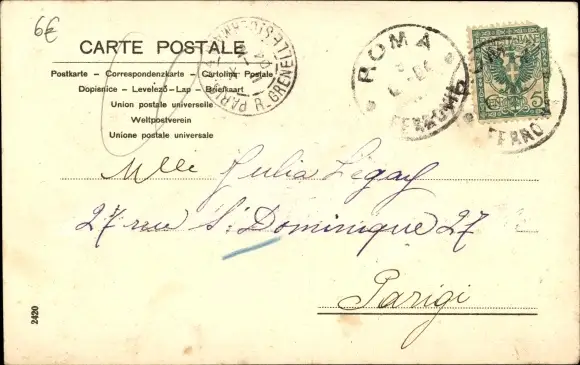 6€
CARTE POSTALE
Postkarte – Correspondenzkarte – Cartolina Postale
Dopisnice – Levelező-Lap – Briefkaart
Union postale universelle
Weltpostverein
Unione postale universale
PARIS R. GRENELLE ST GERMAIN
ROMA
FERROVIA
FERROV
C 5
Mlle Julia Légay
27 rue St. Dominique 27
Parigi
2420